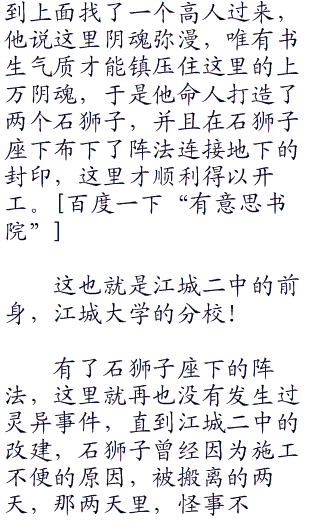 到上面找了一个高人过来，
他说这里阴魂弥漫，唯有书
生气质才能镇压住这里的上
万阴魂，于是他命人打造了
两个石狮子，并且在石狮子
座下布下了阵法连接地下的
封印，这里才顺利得以开
工。[百度一下“有意思书
院”]
这也就是江城二中的前
身，江城大学的分校！
有了石狮子座下的阵
法，这里就再也没有发生过
灵异事件，直到江城二中的
改建，石狮子曾经因为施工
不便的原因，被搬离的两
天，那两天里，怪事不